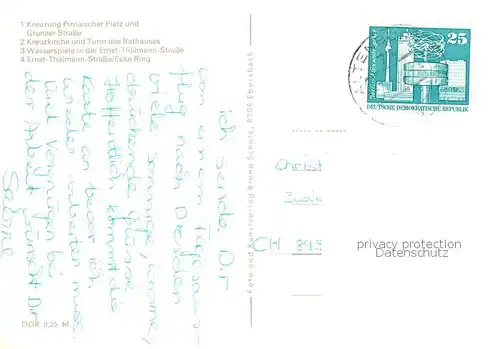 1 Kreuzung Pirnaischer Platz und
Grunaer Straße
2 Kreuzkirche und Turm des Rathauses
3 Wasserspiele in der Ernst-Thälmann-Straße
4 Ernst-Thälmann-Straße/Ecke Ring
ich sende Dir
von einem Tagesaus-
flug nach Dresden
viele sonnige, warme,
drückende Grüsse
Hoffentlich kommt die
Karte an bevor ich
wieder arbeiten muss.
Viel Vergnügen bei
der Arbeit wünscht Dir
Sabine
DDR 0,25 M
Foto und Kunstverlag Bruno Scholz, 8705 Ebersbach
ALTENBERG
25
DEUTSCHE DEMOKRATISCHE REPUBLIK
Christ
CH 895
privacy protection
Datenschutz